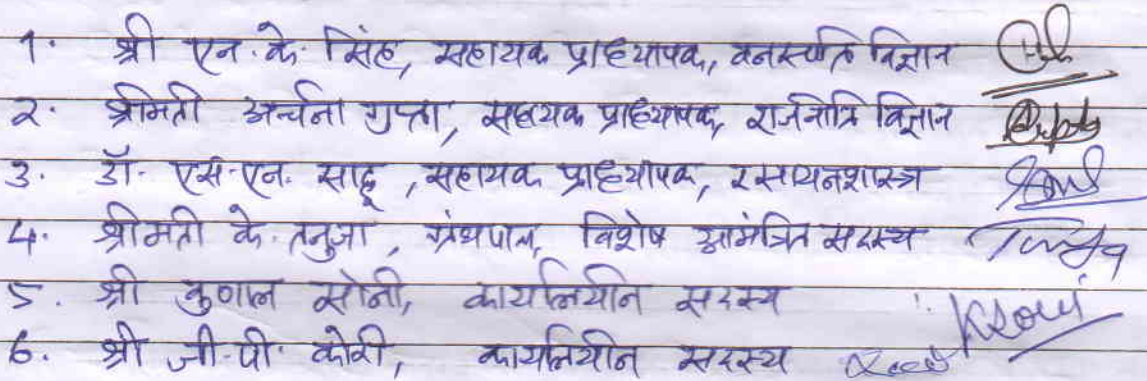 1. श्री एन.के. सिंह, सहायक प्राध्यापक, वनस्पति विज्ञान
2. श्रीमती अर्चना गुप्ता, सहायक प्राध्यापक, राजनीति विज्ञान
3. डॉ. एस.एन. साहू, सहायक प्राध्यापक, रसायनशास्त्र
4. श्रीमती के. तनुजा, ग्रंथपाल, विशेष आमंत्रित सदस्य
5. श्री कुणाल सोनी, कार्यालयीन सदस्य KSoni
6. श्री जी.पी. कोरी, कार्यालयीन सदस्य